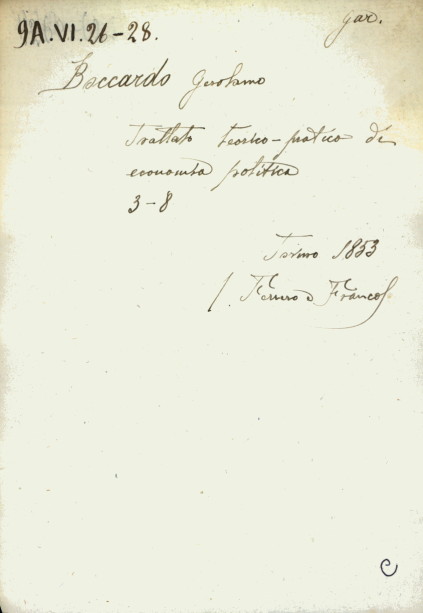 gar.
9A.VI.26-28.
Boccardo Gerolamo
Trattato teorico-pratico di
economia politica
3-8
Torino 1853
Ferrero e Franco
e